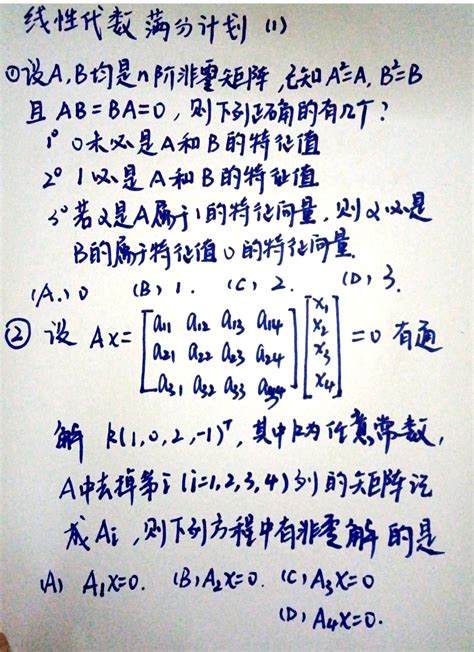 线性代数满分计划(1)
①设A,B均是n阶非零矩阵,已知A²=A,B²=B
且AB=BA=0,则下列正确的有几个?
1° 0未必是A和B的特征值
2° 1必是A和B的特征值
3° 若α是A属于1的特征向量,则α必是
B的属于特征值0的特征向量.
(A.)0 (B)1. (C)2. (D)3.
② 设 Ax= [a₁₁ a₁₂ a₁₃ a₁₄ [x₁
a₂₁ a₂₂ a₂₃ a₂₄ x₂ =0 有通
a₃₁ a₃₂ a₃₃ a₃₄] x₃
x₄]
解 k(1,0,2,-1)ᵀ,其中k为任意常数,
A中去掉第i(i=1,2,3,4)列的矩阵记
成Ai,则下列方程中有非零解的是
(A) A₁x=0. (B)A₂x=0. (C)A₃x=0
(D)A₄x=0.